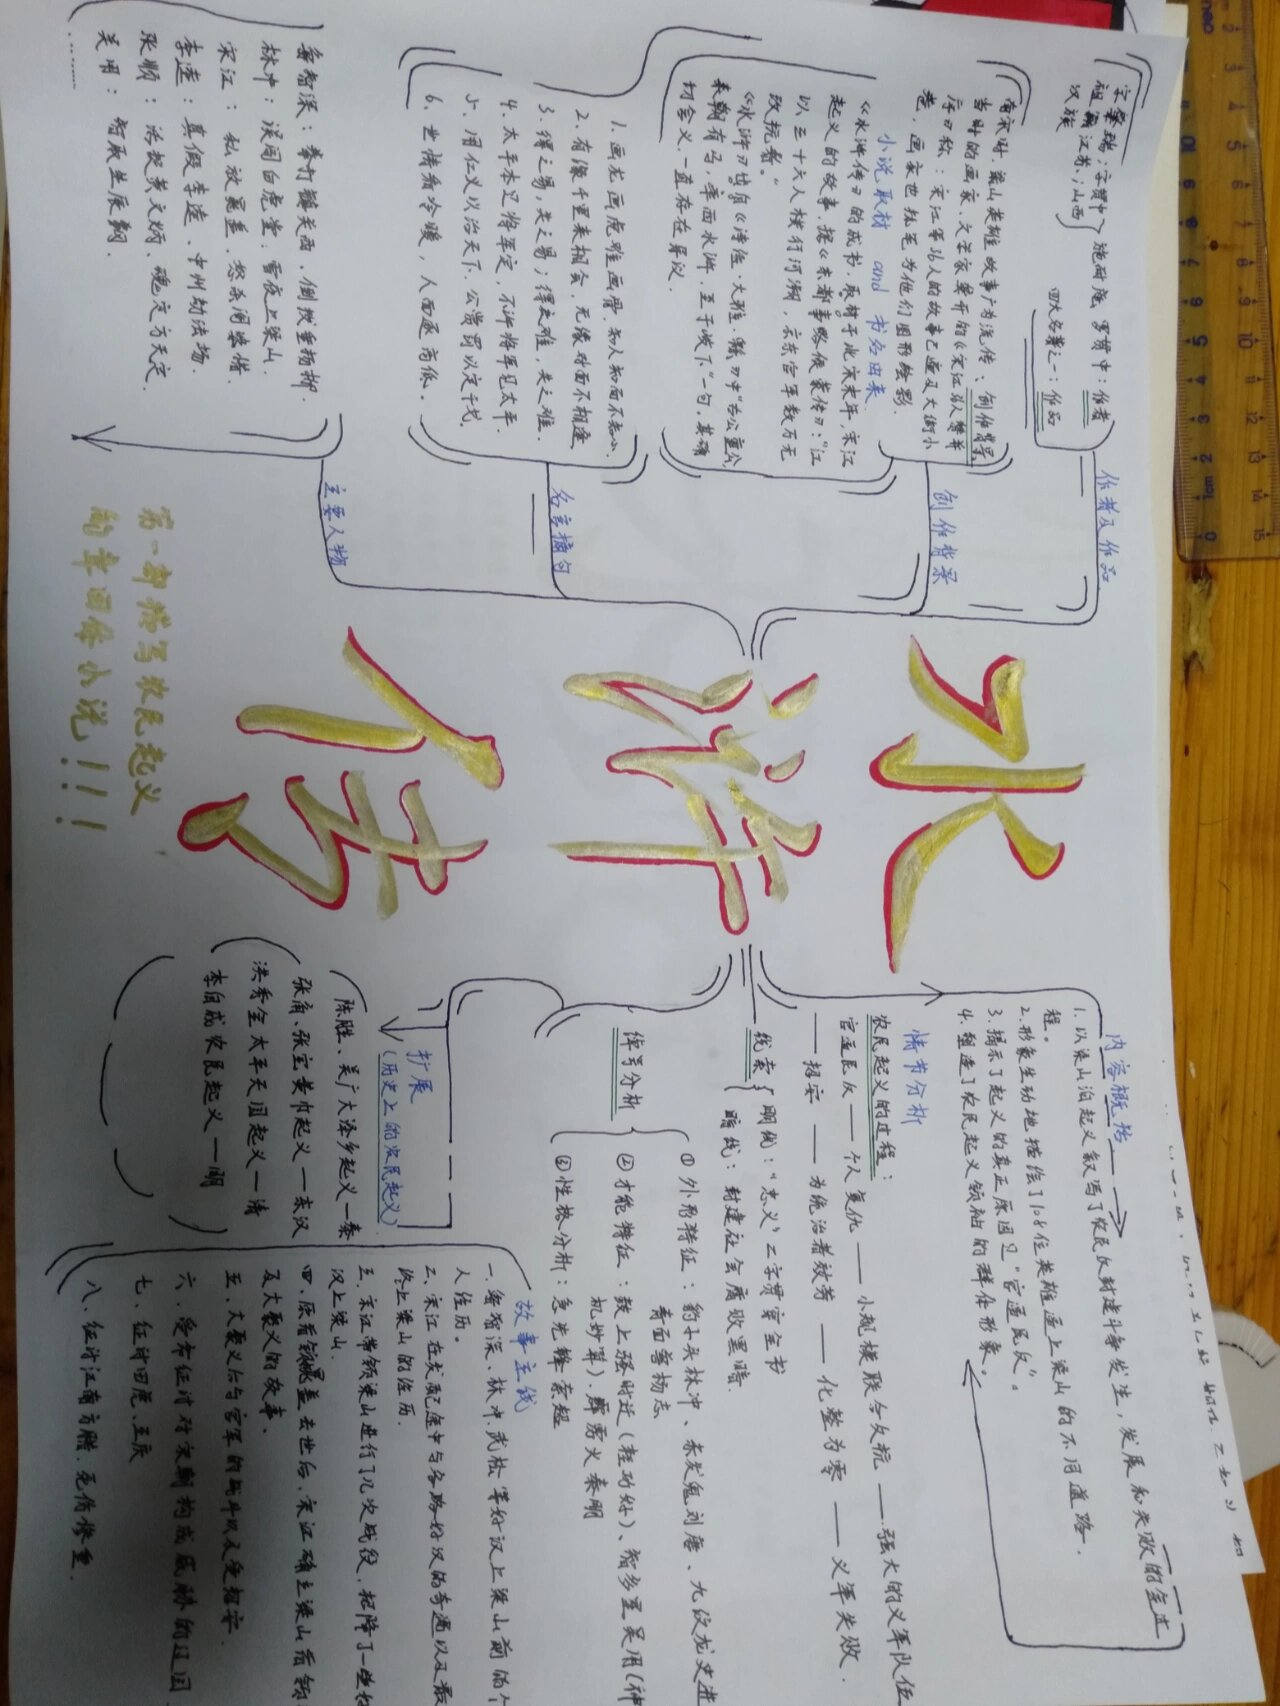 水浒传
第一部描写农民起义
的章回体小说！！！
作者及作品
宋
字贯中
祖籍江苏、山西
汉族
施耐庵、罗贯中：作者
四大名著之一：作品
创作背景
南宋时，梁山英雄故事广为流传、创作背景
当时的画家、文学家龚开的《宋江36人赞并
序》称：宋江等36人的故事已遍及大街小
巷，画家也拈笔为他们图形绘影.
小说取材 and 书名由来
《水浒传》的成书，取材于北宋末年，宋江
起义的故事，据《东都事略侯蒙传》："江
以三十六人横行河朔，京东官军数万无
敢抗者。"
《水浒》語自《诗经.大雅.緜》中"古公亶父，
来朝有马，率西水浒，至于岐下"一句，其确
切含义，一直存在异议.
名言摘句
1.画龙画虎难画骨，知人知面不知心.
2.有缘千里来相会，无缘对面不相逢.
3.得之易，失之易；得之难，失之难.
4.太平本是将军定，不许将军见太平.
5.用仁义以治天下，公赏罚以定干戈.
6.世情看冷暖，人面逐高低.
主要人物
鲁智深：拳打镇关西、倒拔垂杨柳.
林冲：误闯白虎堂，雪夜上梁山.
宋江：私放晁盖、怒杀阎婆惜.
李逵：真假李逵、中州劫法场.
张顺：活捉黄文炳、魂定方天定.
吴用：智取生辰纲.
………
内容概括
1.以梁山泊起义叙写了农民反封建斗争发生，发展和失败的全过
程。
2.形象生动地描绘了108位英雄逼上梁山的不同道路.
3.揭示了起义的真正原因是"官逼民反"。
4.塑造了农民起义领袖的群体形象。
情节分析
农民起义的过程：
官逼民反——个人复仇——小规模联合反抗——强大的义军队伍
——招安——为统治者效劳——化整为零——义军失败.
线索
明线："忠义"二字贯穿全书
暗线：封建社会腐败黑暗.
绰号分析
①外形特征：豹子头林冲、赤发鬼刘唐、九纹龙史进
青面兽杨志
②才能特征：鼓上蚤时迁（轻功好）、智多星吴用（神
机妙算）、霹雳火秦明
③性格分析：急先锋索超
扩展
（历史上的农民起义）
陈胜、吴广大泽乡起义—秦
张角、张宝黄巾起义—东汉
洪秀全太平天国起义—清
李自成农民起义—明
故事主线
一.鲁智深、林冲、武松等好汉上梁山前的个
人经历。
二.宋江在发配途中与各路好汉的奇遇以及最
终上梁山的经历.
三.宋江带领梁山进行了几次战役，招降了一些好
汉上梁山.
四.原首领晁盖去世后，宋江确立梁山首领
及大聚义的故事.
五.大聚义后与官军的战斗以及受招安.
六.受命征讨对宋朝构成威胁的辽国.
七.征讨田虎、王庆
八.征讨江南方腊，死伤惨重.